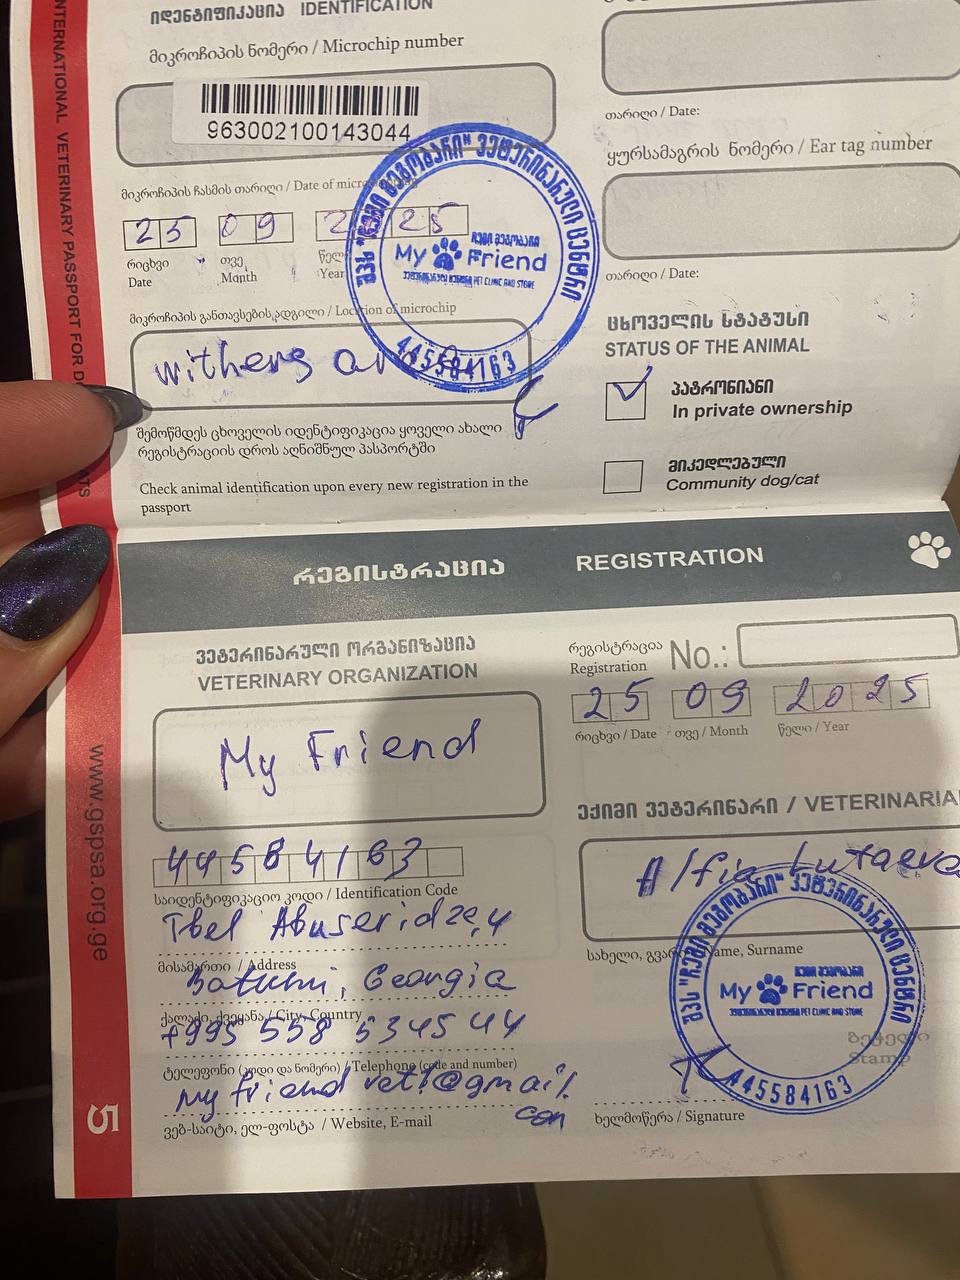 INTERNATIONAL VETERINARY PASSPORT FOR
ATS
იდენტიფიკაცია IDENTIFICATION
მიკროჩიპის ნომერი / Microchip number
963002100143044
მიკროჩიპის ჩასმის თარიღი / Date of
25 09 2 25
რიცხვი თვე წელი
Date Month Year
მიკროჩიპის განთავსების ადგილი / Location of microchip
withers
შპს "ჩემი მეგობარი" ვეტერინარული ცენტრი
ჩემი მეგობარი
My Friend
PET CLINIC AND STORE
445584163
შემოწმდეს ცხოველის იდენტიფიკაცია ყოველი ახალი
რეგისტრაციის დროს აღნიშნულ პასპორტში
Check animal identification upon every new registration in the
passport
თარიღი / Date:
ყურსამაგრის ნომერი / Ear tag number
თარიღი / Date:
ცხოველის სტატუსი
STATUS OF THE ANIMAL
პატრონიანი
In private ownership
მიკედლებული
Community dog/cat
რეგისტრაცია REGISTRATION
ვეტერინარული ორგანიზაცია
VETERINARY ORGANIZATION
My Friend
445584163
საიდენტიფიკაციო კოდი / Identification Code
Tbel Abuseridze,4
მისამართი / Address
Batumi, Georgia
ქალაქი, ქვეყანა / City, Country
+995 558 534544
ტელეფონი (კოდი და ნომერი) / Telephone (code and number)
my friend vet1@gmail.
com
ვებ-საიტი, ელ-ფოსტა / Website, E-mail
რეგისტრაცია
Registration No.:
25 09 2025
რიცხვი / Date თვე / Month წელი / Year
ექიმი ვეტერინარი / VETERINARIA
Alfia Lutaeva
სახელი, გვარი / Name, Surname
შპს "ჩემი მეგობარი" ვეტერინარული ცენტრი
ჩემი მეგობარი
My Friend
PET CLINIC AND STORE
445584163
ბეჭედი
Stamp
ხელმოწერა / Signature
www.gspsa.org.ge
5